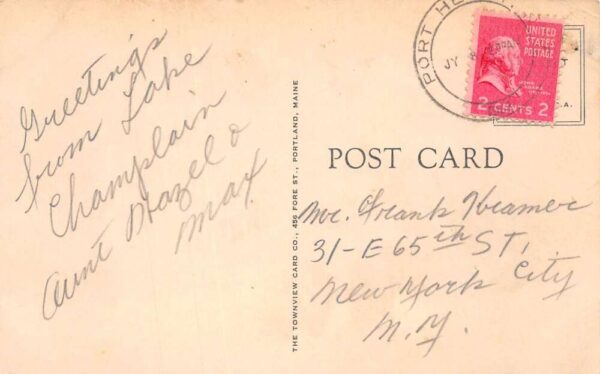 Greetings
from Lake
Champlain
Aunt Hazel &
Max.
THE TOWNVIEW CARD CO., 456 FORE ST., PORTLAND, MAINE
PORT HE
JY 8
UNITED
STATES
POSTAGE
2 CENTS 2
POST CARD
Mr. Frank Kramer
31-E 65th ST,
New York City
N.Y.